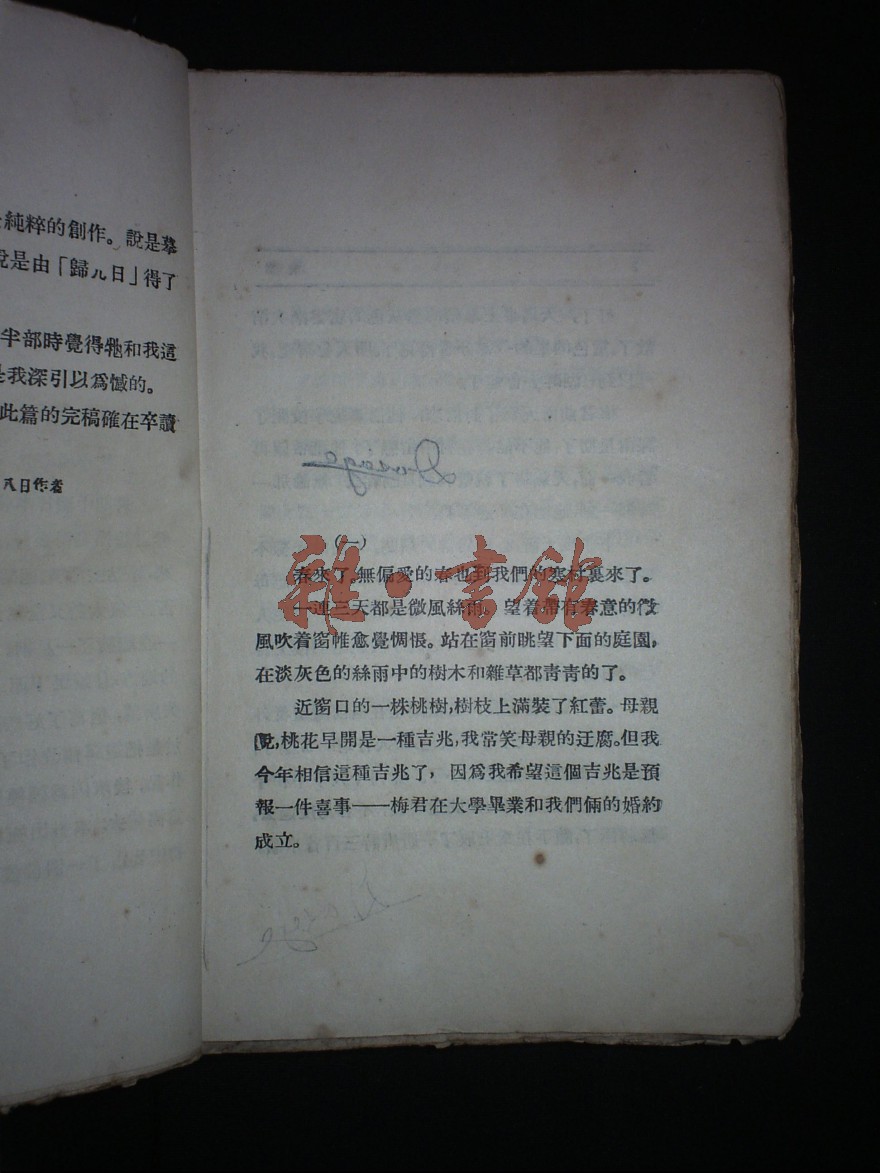 純粹的創作。說是摹
是由「歸ㄦ日」得了
半部時覺得牠和我這
是我深引以爲憾的。
此篇的完稿確在卒讀
八日作者
(一)
春來了。無偏愛的春也到我們的寒村裏來了。
一連三天都是微風絲雨。望着帶有春意的微
風吹着窗帷愈覺惆悵。站在窗前眺望下面的庭園,
在淡灰色的絲雨中的樹木和雜草都靑靑的了。
近窗口的一株桃樹,樹枝上滿裝了紅蕾。母親
說,桃花早開是一種吉兆,我常笑母親的迂腐。但我
今年相信這種吉兆了，因爲我希望這個吉兆是預
報一件喜事——梅君在大學畢業和我們倆的婚約
成立。
雜·書館